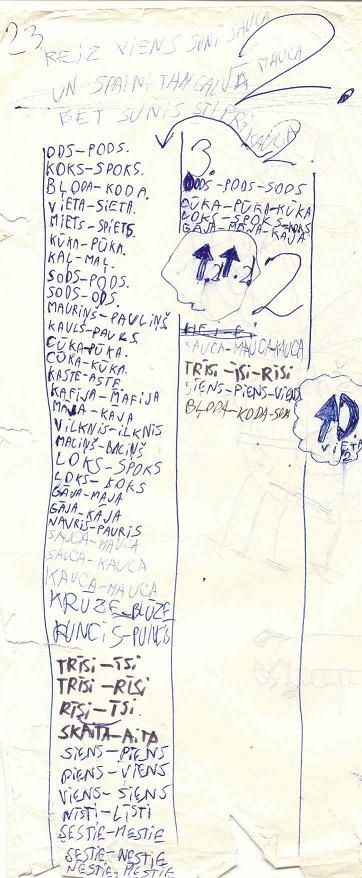 23
REIZ VIENS SUNI SAUCA
MAUCA
UN SPAINI TAM GALVĀ
BET SUNIS STIPRI
KAUCA
2.
ODS-PODS.
KOKS-SPOKS.
BĻODA-KODA.
VIETA-SIETA.
MIETS-SPIETS
KŪKA-PŪKA.
KAĻ-MAĻ.
SODS-PODS.
SODS-ODS.
MAURIŅŠ-PAULIŅŠ
KAULS-PAURS
CŪKA-PŪKA.
CŪKA-KŪKA.
KASTE-ASTE
KAFIJA-MAFIJA
MAJA-KAJA
VILKNIS-ILKNIS
MACIŅŠ-BACIŅŠ
LOKS-SPOKS
LOKS-KOKS
GĀJA-MĀJA
GĀJA-KĀJA
NAVRIS-PAURIS
SAUCA-MAUCA
SAUCA-KAUCA
KAUCA-MAUCA
KRŪZE-BLŪZE
RUNCIS-PUNCIS
TRĪSI-ĪSI
TRĪSI-RĪSI
RĪSI-ĪSI
SKAITA-AITA
SIENS-PIENS
PIENS-VIENS
VIENS-SIENS
NISTI-LĪSTI
SESTIE-MESTIE
SESTIE-NESTIE
NESTIE-MESTIE
3.
ODS-PODS-SODS
CŪKA-PŪKA-KŪKA
LOKS-SPOKS-KOKS
GĀJA-MĀJA-KĀJA
2.2
2
SAUCA-MAUCA-KAUCA
TRĪSI-ĪSI-RĪSI
SIENS-PIENS-VIENS
BĻODA-KODA-
VIETA